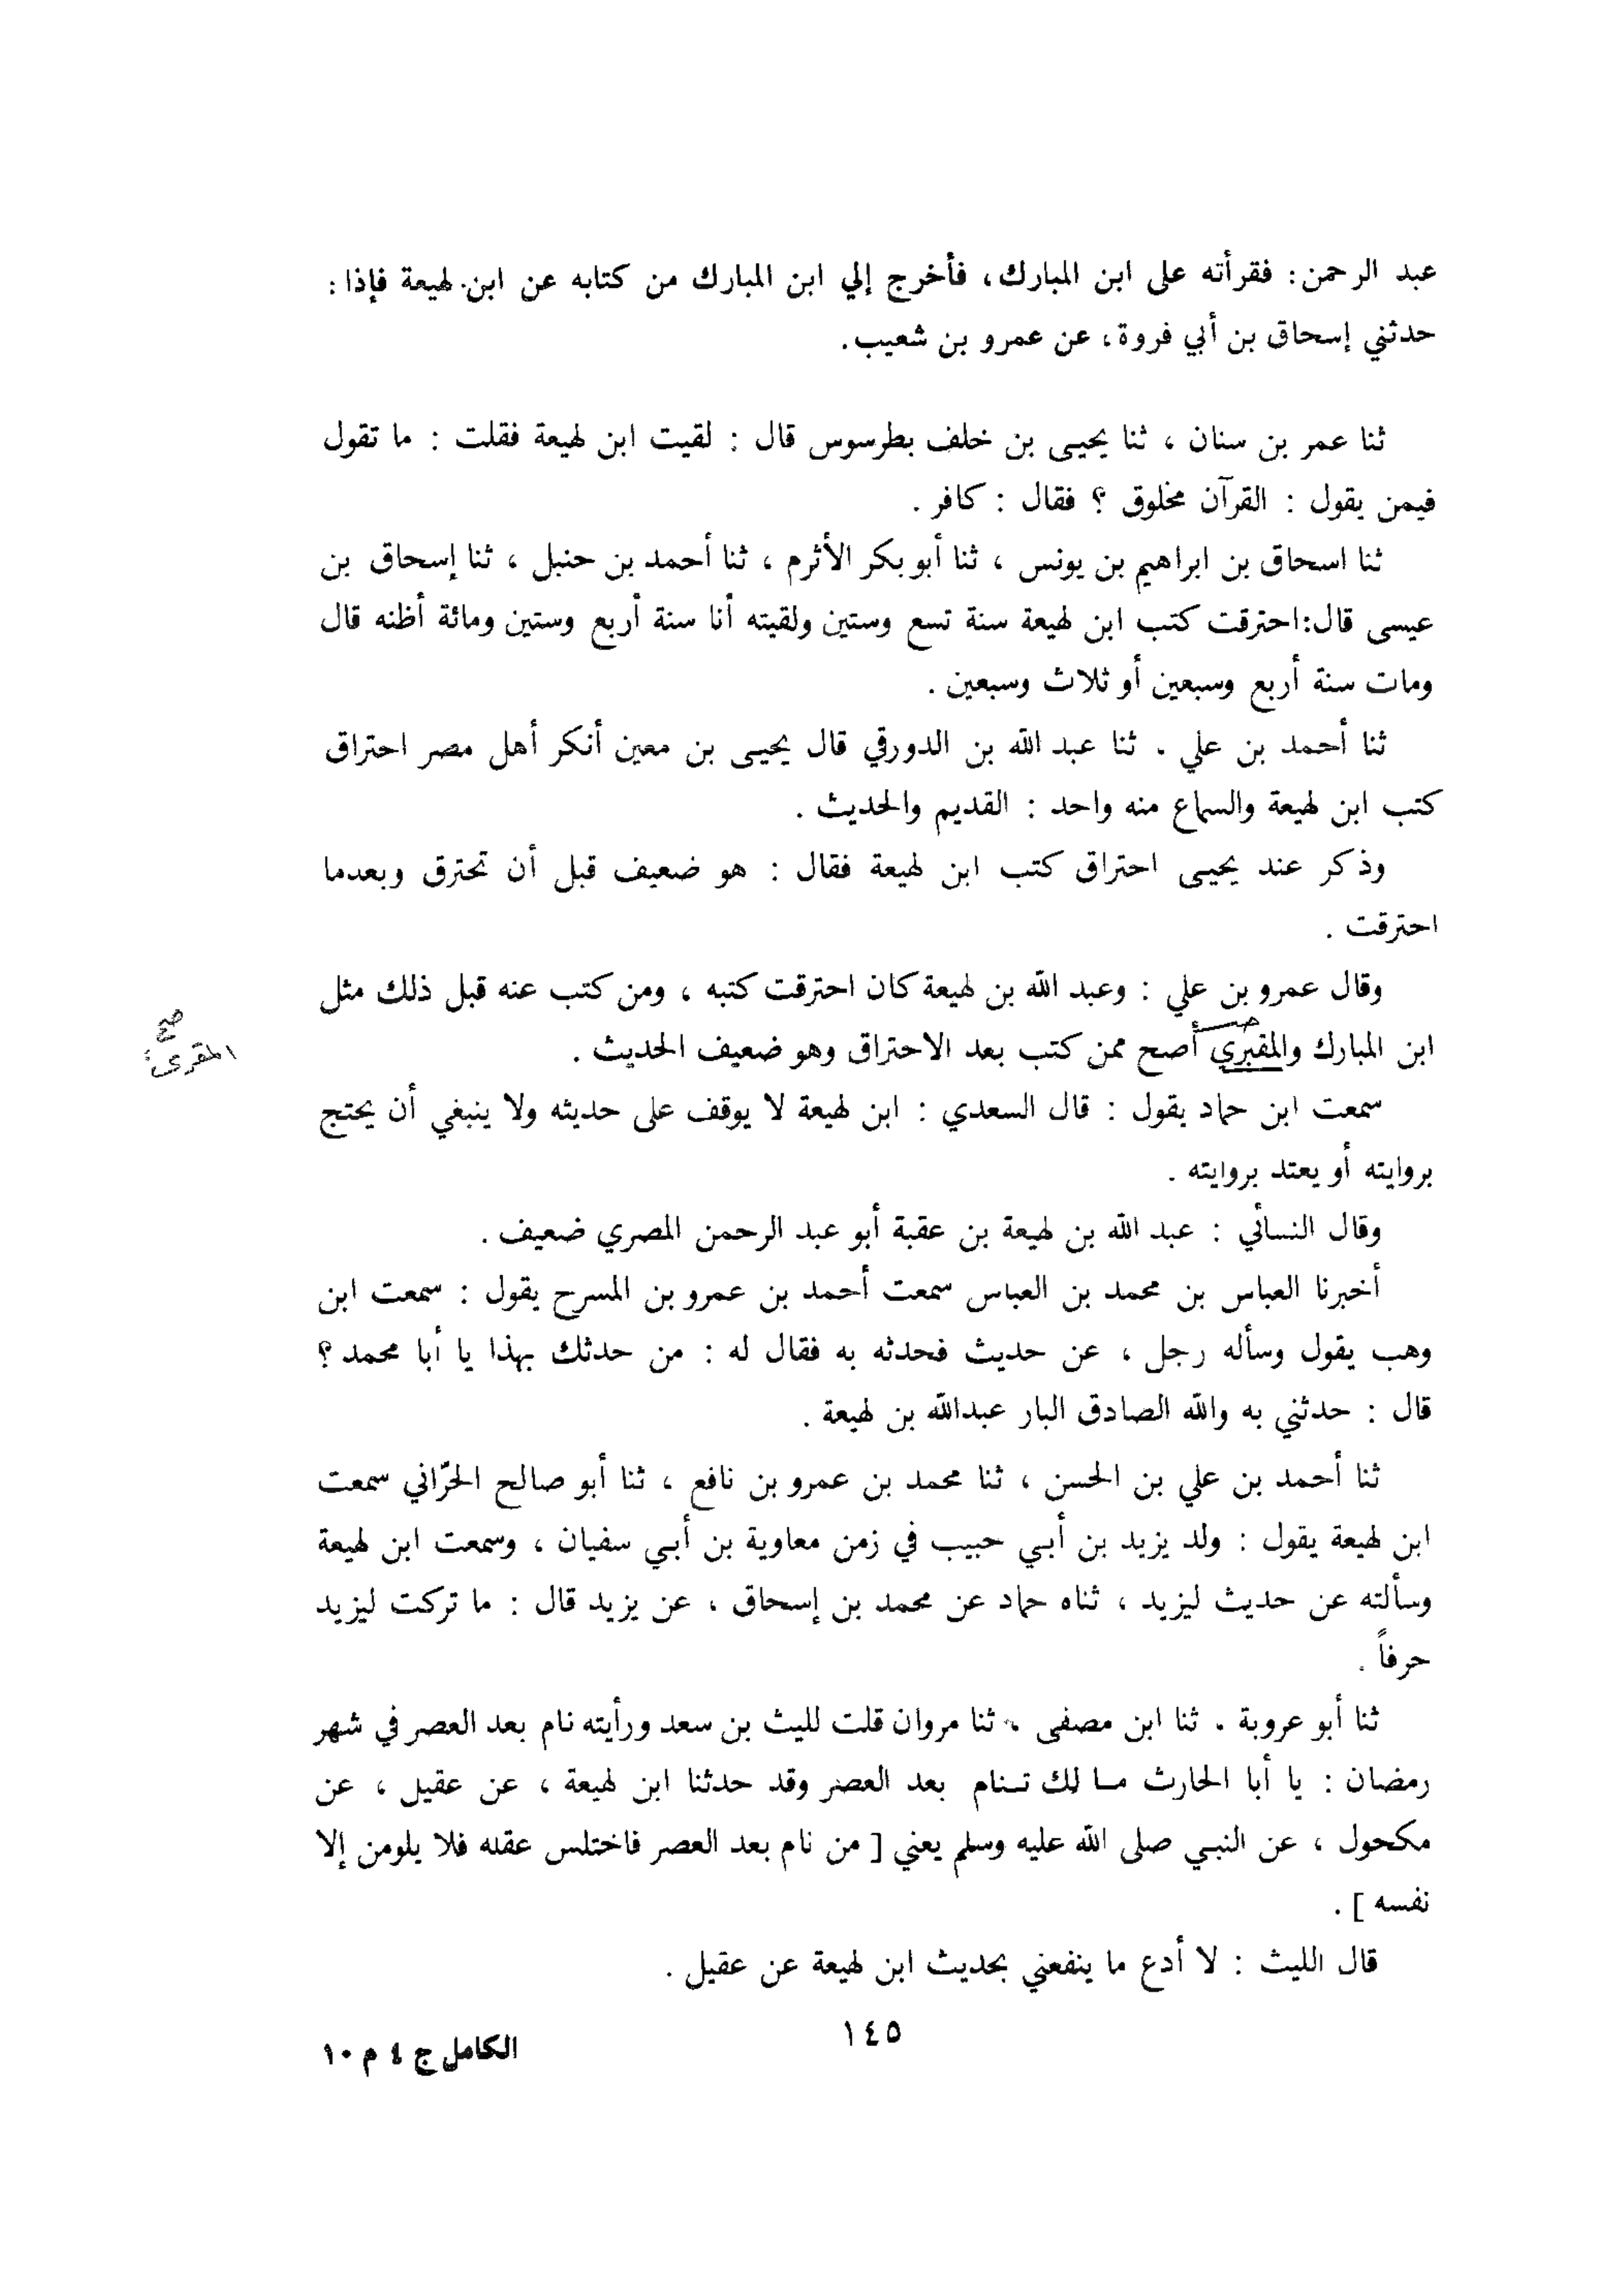 عبد الرحمن: فقرأته على ابن المبارك، فأخرج إلي ابن المبارك من كتابه عن ابن لهيعة فإذا :
حدثني إسحاق بن أبي فروة، عن عمرو بن شعيب.
ثنا عمر بن سنان ، ثنا يحيى بن خلف بطرسوس قال : لقيت ابن لهيعة فقلت : ما تقول
فيمن يقول : القرآن مخلوق ؟ فقال : كافر .
ثنا اسحاق بن ابراهيم بن يونس ، ثنا أبو بكر الأثرم ، ثنا أحمد بن حنبل ، ثنا إسحاق بن
عيسى قال:احترقت كتب ابن لهيعة سنة تسع وستين ولقيته أنا سنة أربع وستين ومائة أظنه قال
ومات سنة أربع وسبعين أو ثلاث وسبعين .
ثنا أحمد بن علي . ثنا عبد الله بن الدورقي قال يحيى بن معين أنكر أهل مصر احتراق
كتب ابن لهيعة والسماع منه واحد : القديم والحديث .
وذكر عند يحيى احتراق كتب ابن لهيعة فقال : هو ضعيف قبل أن تحترق وبعدما
احترقت .
وقال عمرو بن علي : وعبد الله بن لهيعة كان احترقت كتبه ، ومن كتب عنه قبل ذلك مثل
ابن المبارك والمقبري أصح ممن كتب بعد الاحتراق وهو ضعيف الحديث .
صح
المقرىء
سمعت ابن حماد يقول : قال السعدي : ابن لهيعة لا يوقف على حديثه ولا ينبغي أن يحتج
بروايته أو يعتد بروايته .
وقال النسائي : عبد الله بن لهيعة بن عقبة أبو عبد الرحمن المصري ضعيف .
أخبرنا العباس بن محمد بن العباس سمعت أحمد بن عمرو بن المسرح يقول : سمعت ابن
وهب يقول وسأله رجل ، عن حديث فحدثه به فقال له : من حدثك بهذا يا أبا محمد ؟
قال : حدثني به والله الصادق البار عبدالله بن لهيعة .
ثنا أحمد بن علي بن الحسن ، ثنا محمد بن عمرو بن نافع ، ثنا أبو صالح الحرّاني سمعت
ابن لهيعة يقول : ولد يزيد بن أبي حبيب في زمن معاوية بن أبي سفيان ، وسمعت ابن لهيعة
وسألته عن حديث ليزيد ، ثناه حماد عن محمد بن إسحاق ، عن يزيد قال : ما تركت ليزيد
حرفاً .
ثنا أبو عروبة . ثنا ابن مصفى ، ثنا مروان قلت لليث بن سعد ورأيته نام بعد العصر في شهر
رمضان : يا أبا الحارث مـا لك تـنام بعد العصر وقد حدثنا ابن لهيعة ، عن عقيل ، عن
مكحول ، عن النبي صلى الله عليه وسلم يعني [ من نام بعد العصر فاختلس عقله فلا يلومن إلا
نفسه ] .
قال الليث : لا أدع ما ينفعني بحديث ابن لهيعة عن عقيل .
١٤٥
الكامل ج ٤ م ١٠